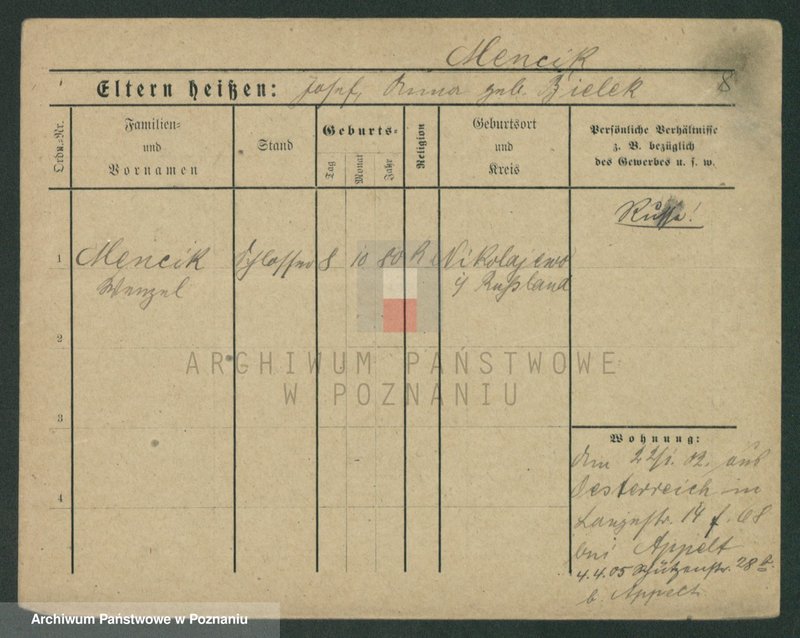 Mencik
Eltern heißen: Josef, Anna geb. Bielek
8
Ordn.-Nr.
Familien- und Vornamen
Stand
Geburts-
Tag Monat Jahr
Religion
Geburtsort und Kreis
Persönliche Verhältnisse
z. B. bezüglich
des Gewerbes u. s. w.
Russe!
1 Mencik Schlosser 8 10 80 K Nikolajewo
Wenzel Rußland
2
ARCHIWUM PAŃSTWOWE
W POZNANIU
3
4
Wohnung:
Den 22/1. 02. aus
Oesterreich in
14 f. 68
bei Appelt
4.4.05 Schützenstr. 28a
b. Appelt
Archiwum Państwowe w Poznaniu